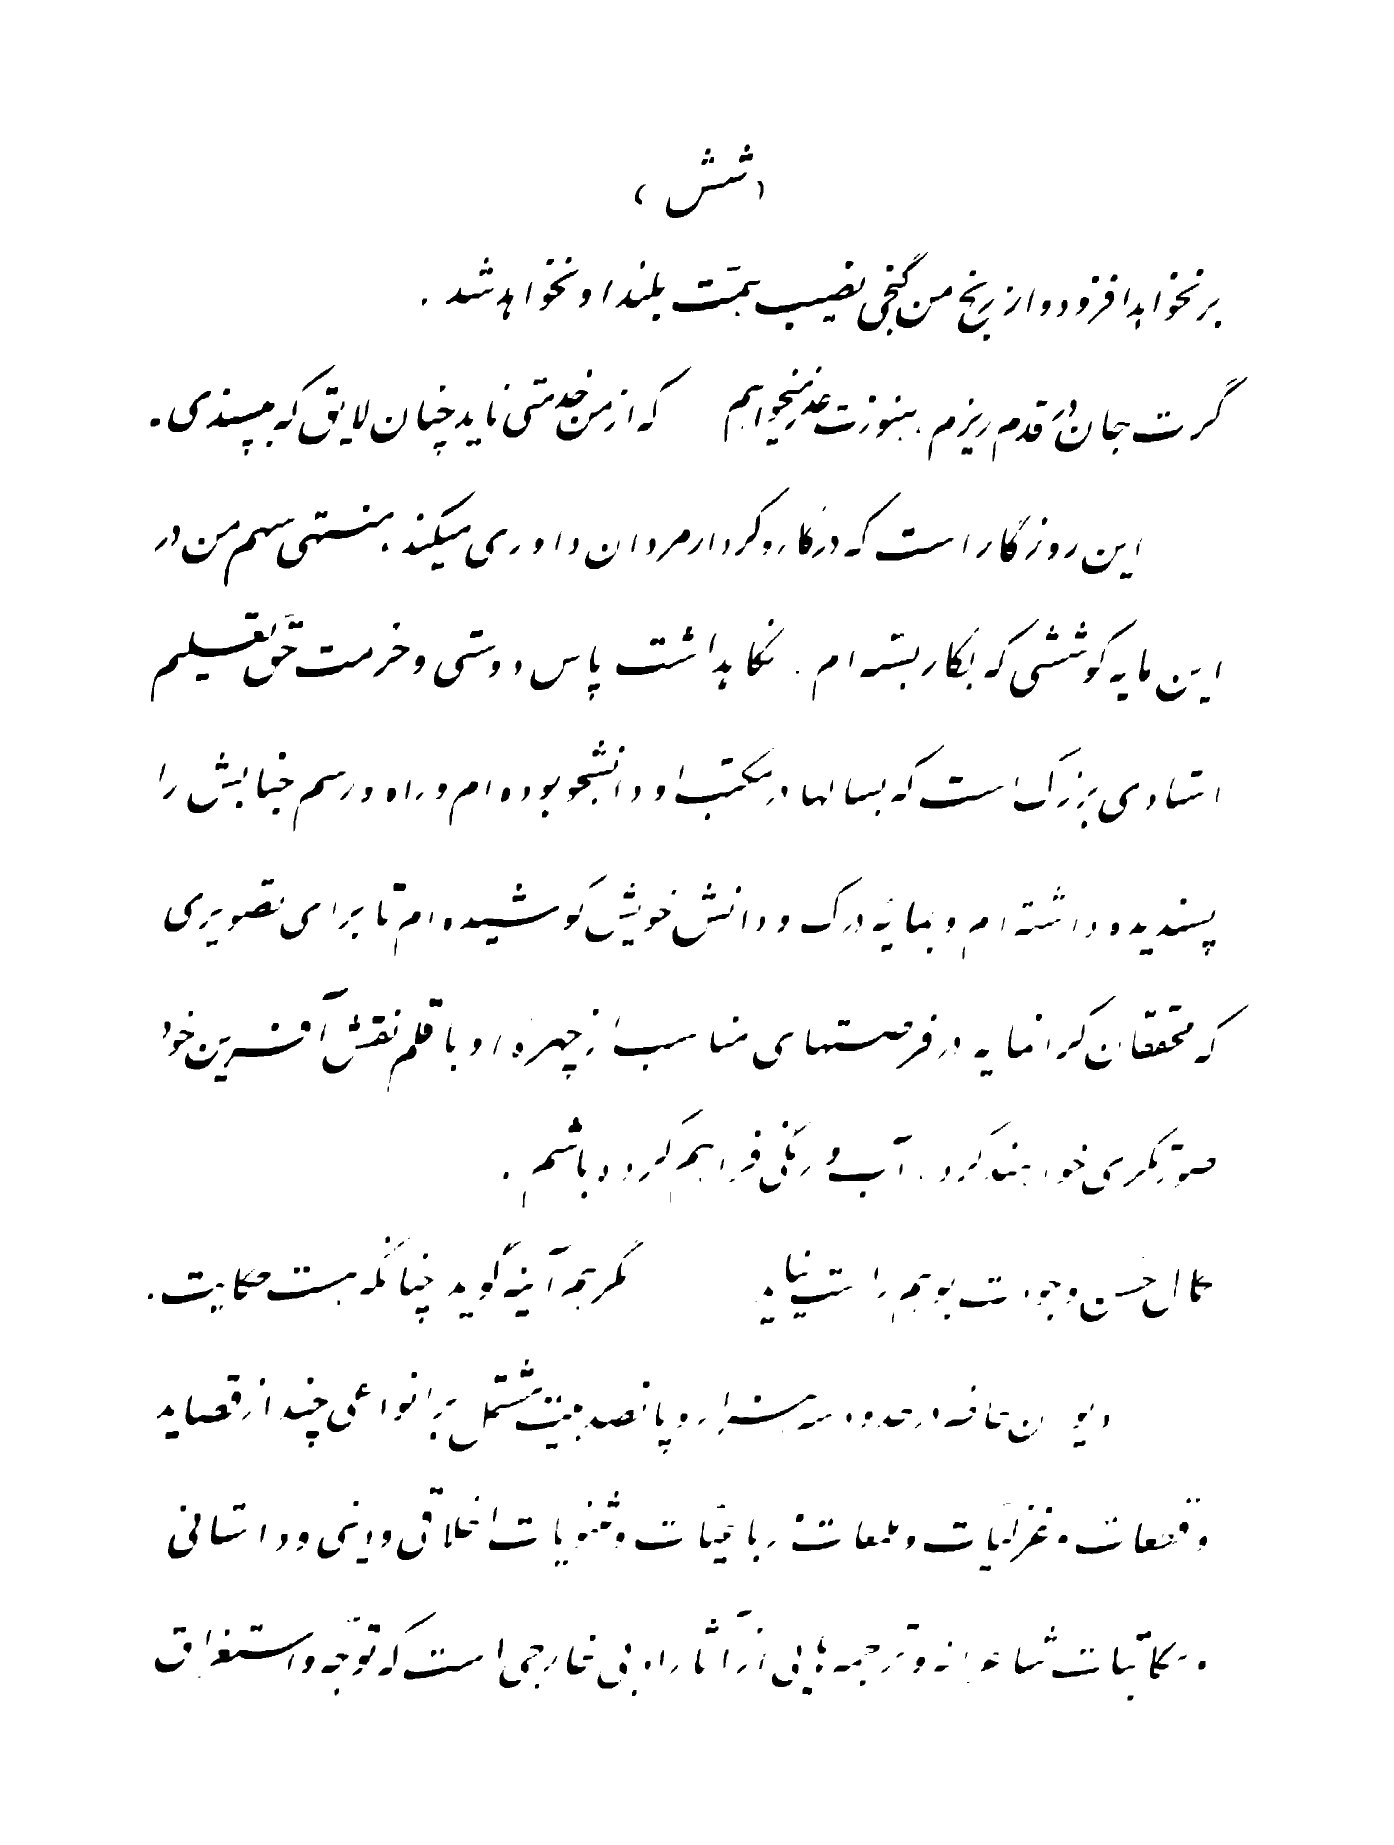 (شش)
بر نخواهد افزود و از رنج من گنجی نصیب همّت بلند او نخواهد شد .
گرت جان در قدم ریزم هنوزت عذر میخواهم که از من خدمتی ناید چنان لایق که بپسندی .
این روزگار است که در کار و کردار مردان داوری میکند . منتهی سهم من در
این مایه کوششی که بکار بسته ام . نگاهداشت پاس دوستی و حرمت حقّ تعلیم
استادی بزرگ است که بسالها در مکتب او دانشجو بوده ام و راه و رسم جنابش را
پسندیده داشته ام و بمایه درک و دانش خویش کوشیده ام تا برای تصویری
که محققان گرانمایه در فرصتهای مناسب از چهره او با قلم نقش آفرین خود
صورتگری خواهند کرد . آب و رنگی فراهم کرده باشم .
کمال حسن وجودت بوهم راست نیاید مگر هم آینه گوید چنانکه هست حکایت .
دیوان در حدود سه هزار و پانصد بیت مشتمل بر انواعی چند از قصاید
و قطعات و غزلیّات و ملمعات و رباعیّات و مثنویات اخلاقی و دینی و داستانی
و مکاتبات شاعرانه و ترجمه هایی از آثار ادبی خارجی است که توجّه و استغراق